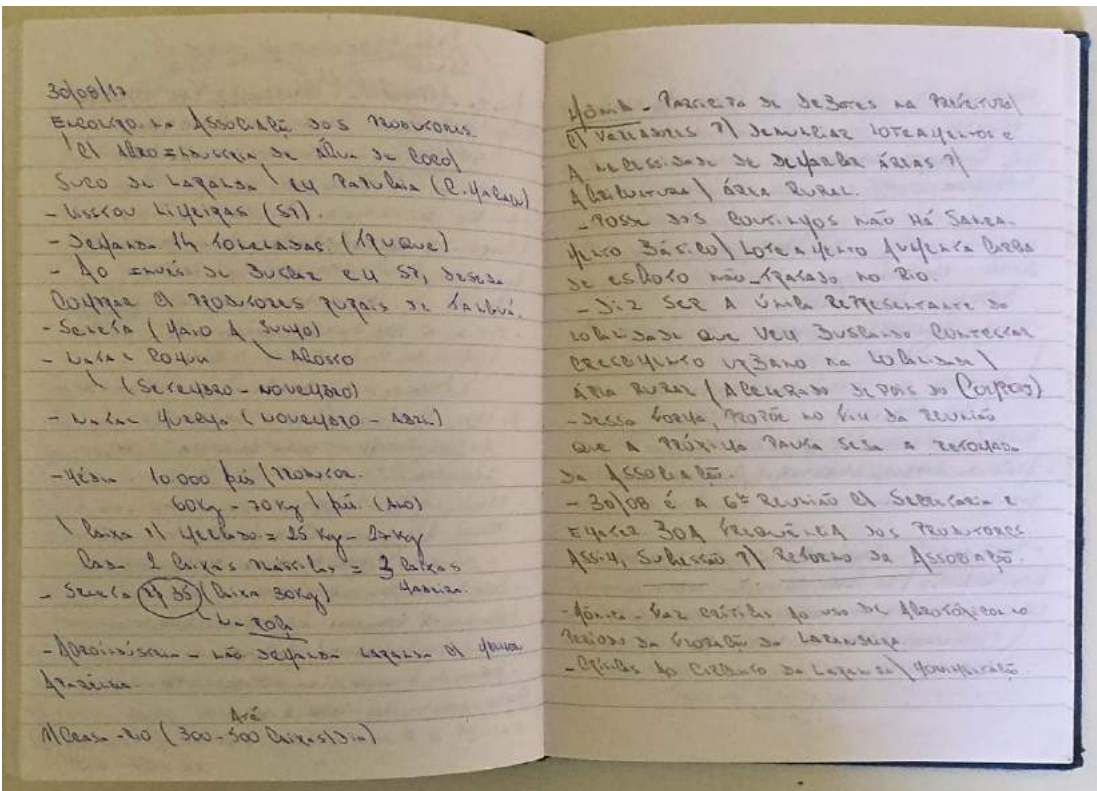 30/08/17
Encontro na Associação dos Produtores
c/ Agroindústria de Água de Coco/
Suco de Laranja \ em (C. Macacu)
- Visitou Limeiras (SP).
- Demanda 14 toneladas (Truque)
- Ao invés de buscar em SP, deseja
comprar c/ produtores rurais de Tanguá.
- Seleta (Maio A Julho)
- Natal Comum \ Agosto
\ (Setembro - Novembro)
- Natal Murcha (Novembro - Abril)
- Média 10.000 pés / Produtor.
60Kg - 70Kg \ pé. (Ano)
\ Caixa p/ Mercado = 25 Kg - 27Kg
Cada 2 Caixas Plásticas = 3 Caixas
Madeira.
- Seleta 35 (Caixa 30Kg)
- Agroindústria - não demanda laranja c/
Até
\ Ceasa - Rio (300 - 500 Caixas\Dia)
Mônica - Participa de debates na Prefeitura/
c/ vereadores p/ denunciar loteamentos e
A necessidade de demarcar áreas p/
Agricultura \ área rural.
- Posse dos Coutinhos não há Sanea-
mento Básico \ Loteamento Aumenta Carga
de esgoto não-tratado no Rio.
- Diz ser A única representante da
localidade que vem buscando contestar
crescimento urbano na localidade \
área rural (Acelerado depois do Comperj)
- Dessa forma, propõe no fim da reunião
que A próxima pauta seja A retomada
da Associação.
- 30/08 é A 6ª Reunião c/ Secretaria e
boa frequência dos Produtores
Assim, Sugestão p/ Retorno da Associação.
- Mônica - faz críticas ao uso de Agrotóxicos no
período da floração da laranjeira.
- Críticas ao Circuito da Laranja \